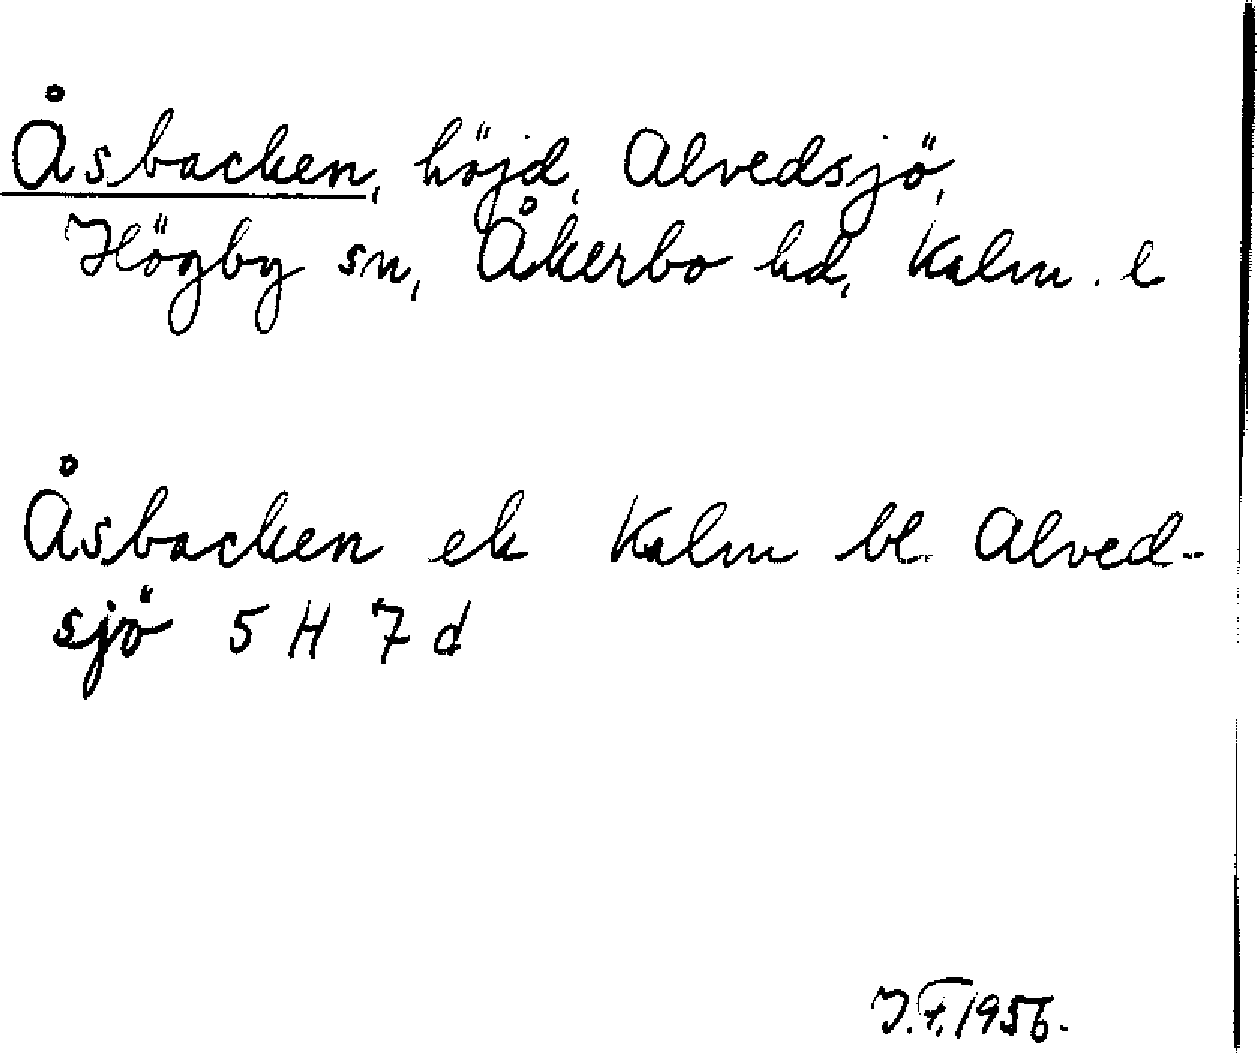 Åsbacken, höjd, Alvedsjö,
Högby sn, Åkerbo hd, Kalm. l
Åsbacken ek Kalm bl Alved-
sjö 5 H 7 d
J.F. 1956.